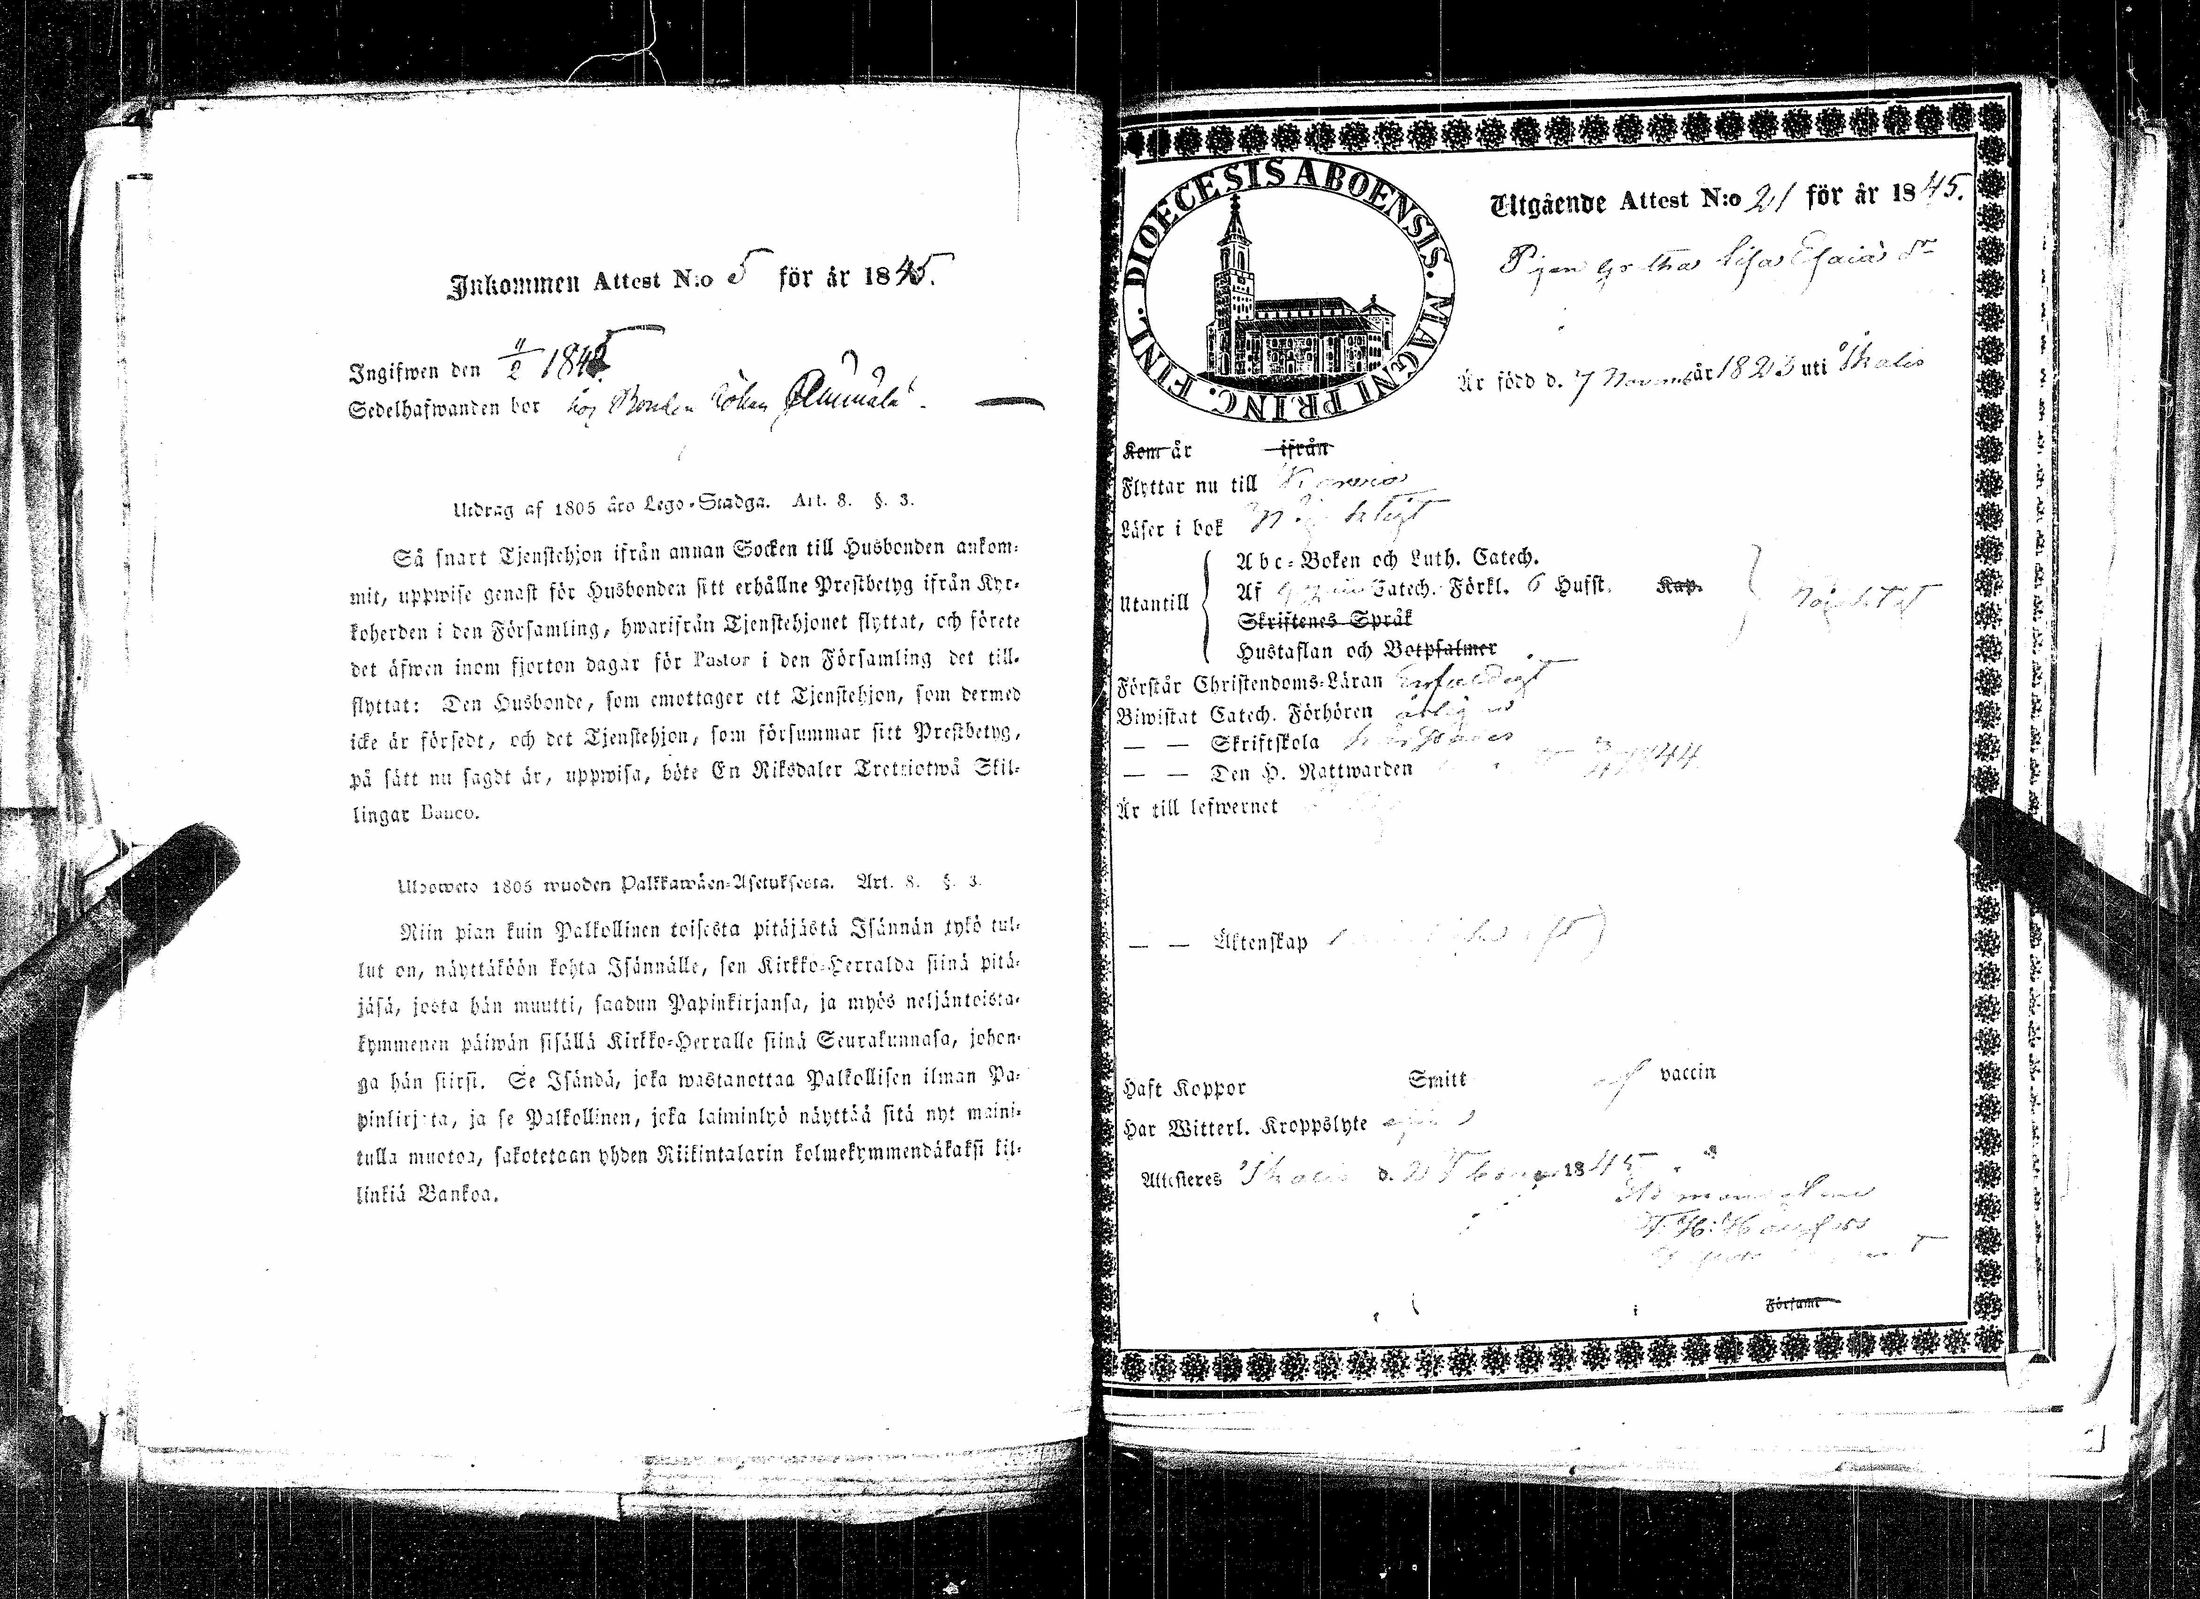 Inkommen Attest N:o 5 för år 1845.
Ingifwen den 11/2 1845
Sedelhafwanden bor hos Bonden Johan
Utdrag af 1805 års Lego-Stadga. Art. 8. §. 3.
Så snart Tjenstehjon ifrån annan Socken till Husbonden ankom-
mit, uppwise genast för Husbonden sitt erhållne Prestbetyg ifrån Kyr-
koherden i den Församling, hwarifrån Tjenstehjonet flyttat, och förete
det äfwen inom fjorton dagar för Pastor i den Församling det till-
flyttat: Den Husbonde, som emottager ett Tjenstehjon, som dermed
icke är försedt, och det Tjenstehjon, som försummar sitt Prestbetyg,
på sätt nu sagdt är, uppwisa, böte En Riksdaler Trettiotwå Skil-
lingar Banco.
Ulosweto 1805 wuoden Palkkawäen-Asetuksesta. Art. 8. §. 3.
Niin pian kuin Palkollinen toisesta pitäjästä Isännän tykö tul-
lut on, näyttäköön kohta Isännälle, sen Kirkko-Herralda siinä pitä-
jäsä, josta hän muutti, saadun Papinkirjansa, ja myös neljäntoista-
kymmenen päiwän sisällä Kirkko-Herralle siinä Seurakunnasa, johon-
ga hän siirsi. Se Isändä, joka wastanottaa Palkollisen ilman Pa-
pinkirjata, ja se Palkollinen, joka laiminlyö näyttää sitä nyt maini-
tulla muotoa, sakotetaan yhden Riikintalarin kolmekymmendäkaksi kil-
linkiä Bankoa.
DIOECESIS ABOENSIS. MAGNI PRINC. FINL.
Utgående Attest N:o 21 för år 1845.
Pigan Greta Lisa Esaiä dr
Är född d. 7 Novemb år 1823 uti Ikalis
Kom år ifrån
Flyttar nu till
Läser i bok
Utantill
Abc-Boken och Luth. Catech.
Af Catech. Förkl. 6 Hufst. Kap.
Skriftenes Språk
Hustaflan och Botpsalmer
Förstår Christendoms-Läran Enfaldigt
Biwistat Catech. Förhören årligen
— — Skriftskola
— — Den H. Nattwarden 1844
Är till lefwernet
— — Äktenskap
Haft Koppor Smitt af vaccin
Har Witterl. Kroppslyte
Attesteres Ikalis d. 2 1845
i Församl